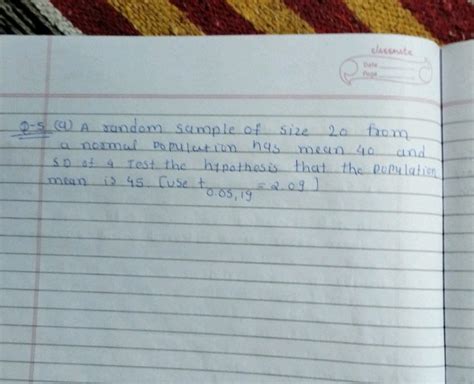 classmate
Date
Page
Q-5 (a) A random sample of size 20 from
a normal population has mean 40 and
SD of 4 Test the hipothesis that the population
mean is 45. [Use t0.05,19 = 2.09]